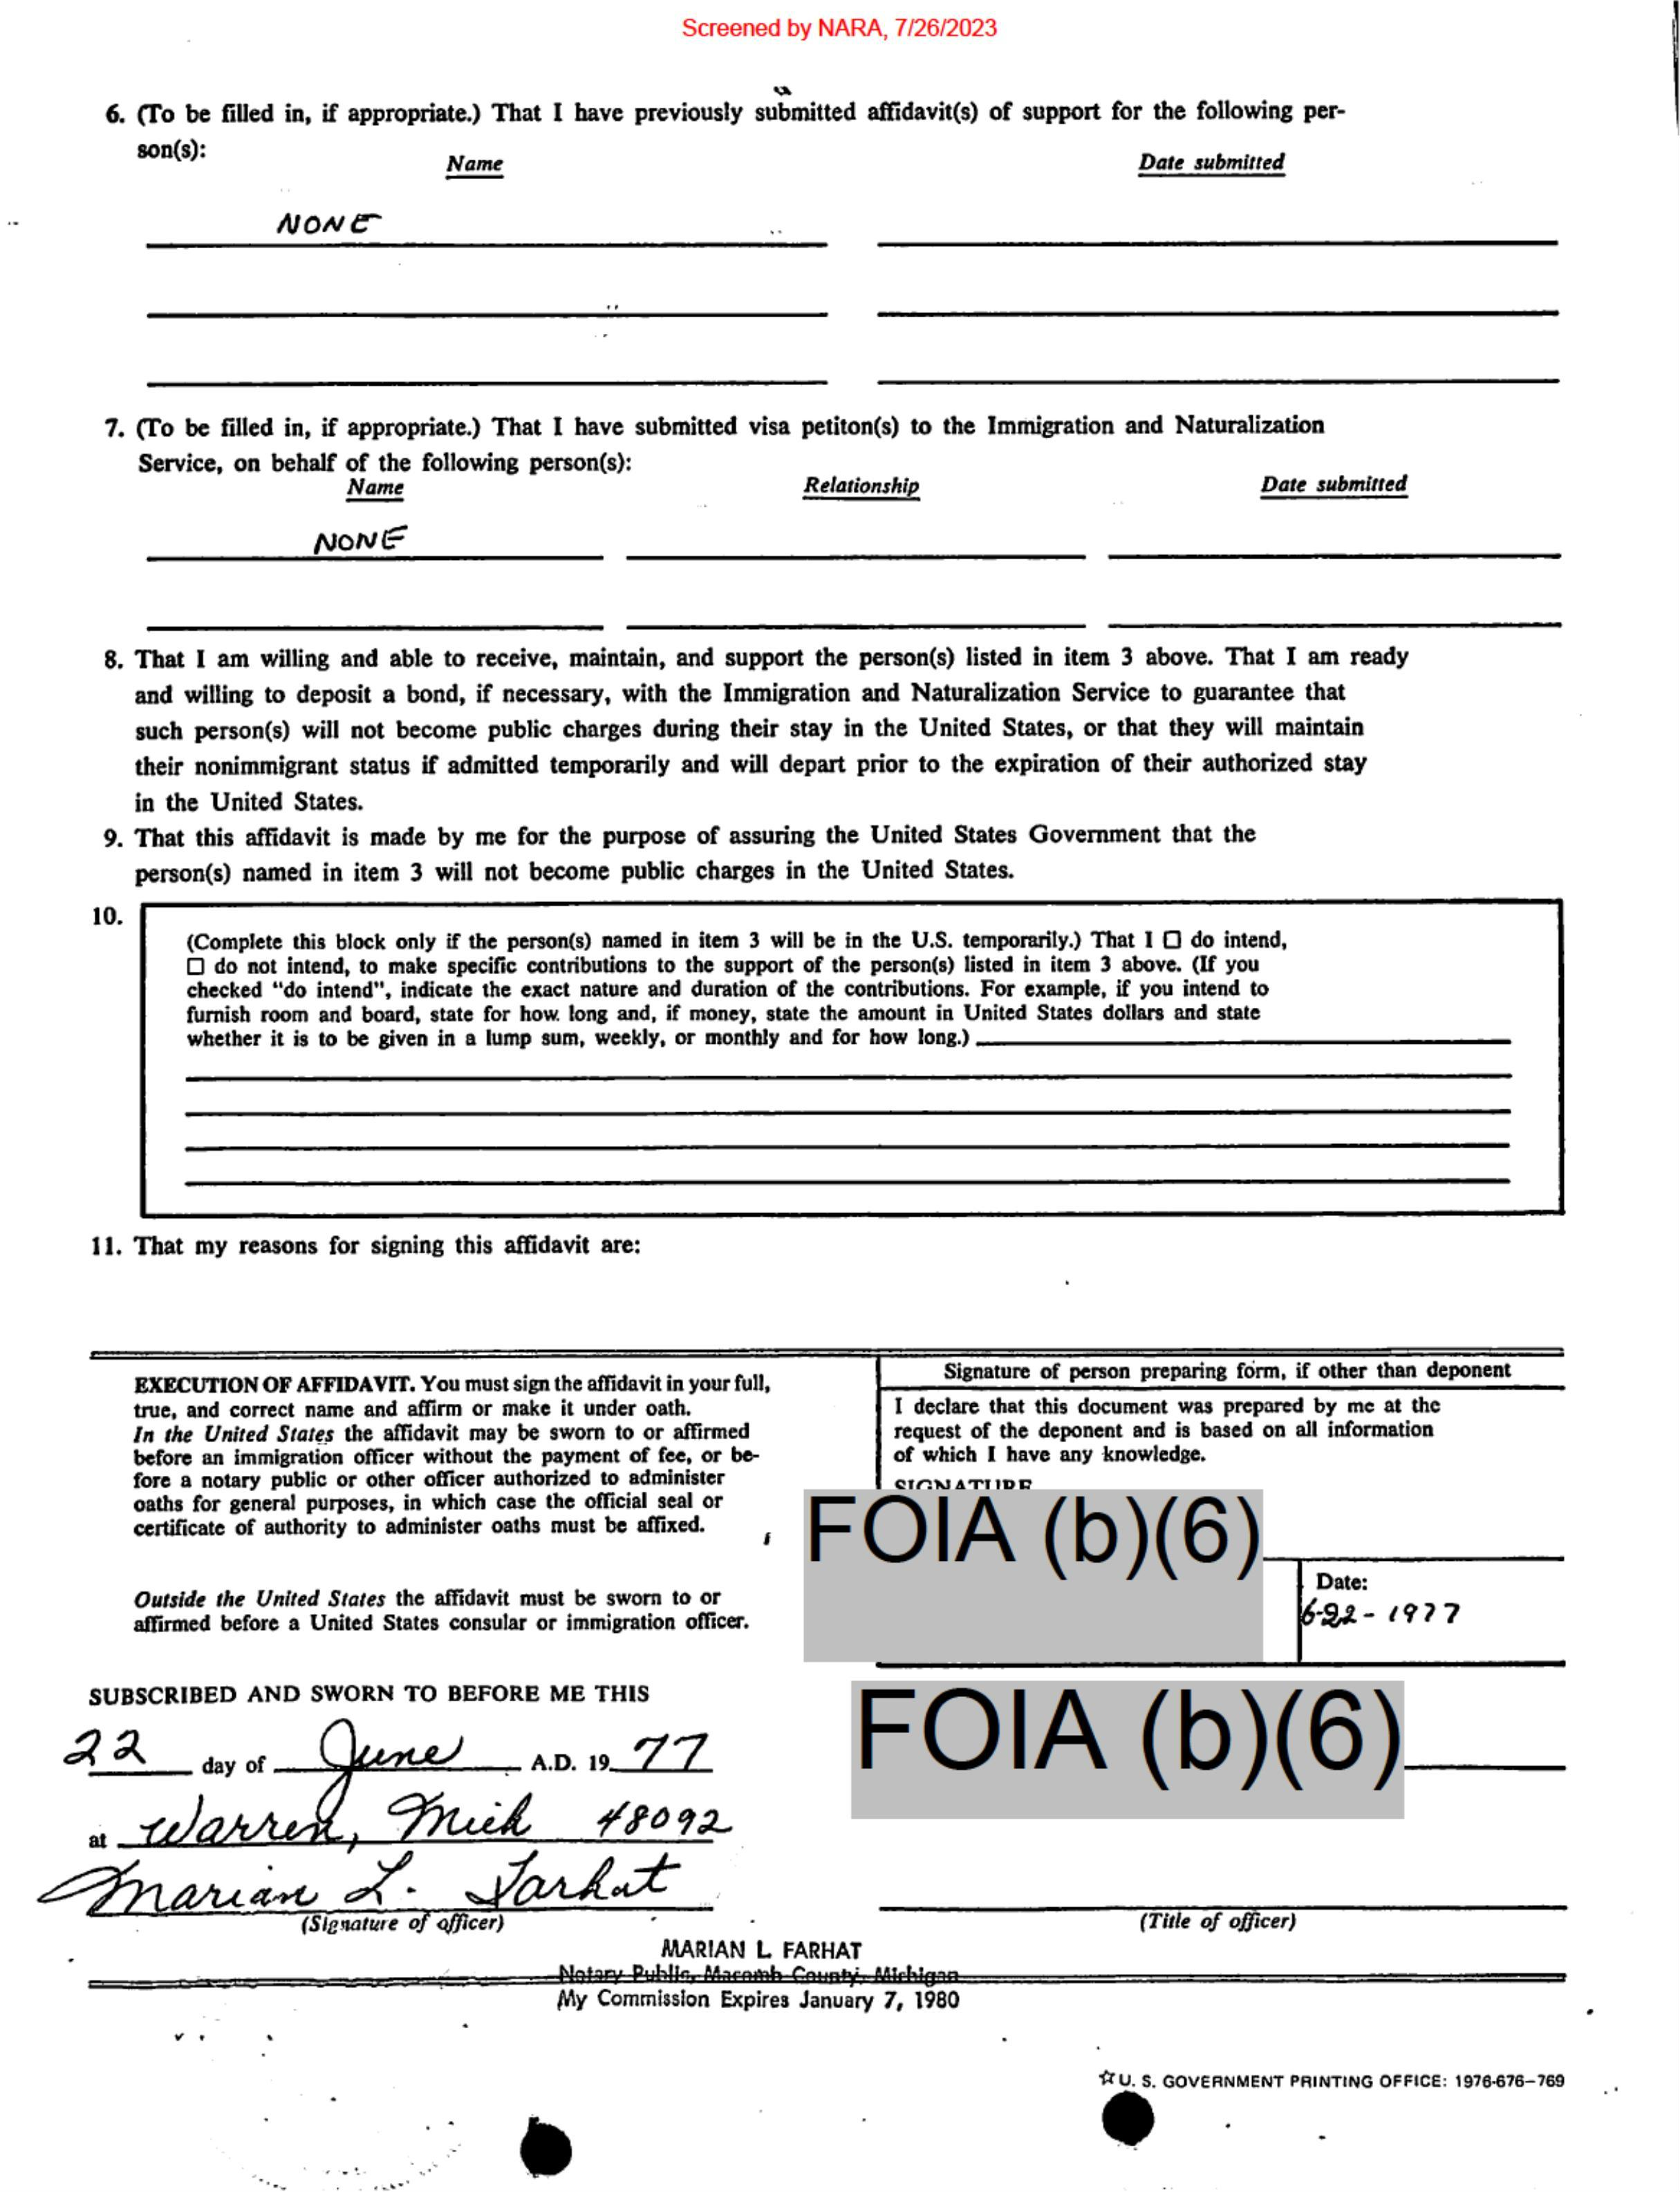 Screened by NARA, 7/26/2023
6. (To be filled in, if appropriate.) That I have previously submitted affidavit(s) of support for the following per-
son(s):
Name Date submitted
NONE
7. (To be filled in, if appropriate.) That I have submitted visa petiton(s) to the Immigration and Naturalization
Service, on behalf of the following person(s):
Name Relationship Date submitted
NONE
8. That I am willing and able to receive, maintain, and support the person(s) listed in item 3 above. That I am ready
and willing to deposit a bond, if necessary, with the Immigration and Naturalization Service to guarantee that
such person(s) will not become public charges during their stay in the United States, or that they will maintain
their nonimmigrant status if admitted temporarily and will depart prior to the expiration of their authorized stay
in the United States.
9. That this affidavit is made by me for the purpose of assuring the United States Government that the
person(s) named in item 3 will not become public charges in the United States.
10.
(Complete this block only if the person(s) named in item 3 will be in the U.S. temporarily.) That I ☐ do intend,
☐ do not intend, to make specific contributions to the support of the person(s) listed in item 3 above. (If you
checked "do intend", indicate the exact nature and duration of the contributions. For example, if you intend to
furnish room and board, state for how long and, if money, state the amount in United States dollars and state
whether it is to be given in a lump sum, weekly, or monthly and for how long.)
11. That my reasons for signing this affidavit are:
EXECUTION OF AFFIDAVIT. You must sign the affidavit in your full,
true, and correct name and affirm or make it under oath.
In the United States the affidavit may be sworn to or affirmed
before an immigration officer without the payment of fee, or be-
fore a notary public or other officer authorized to administer
oaths for general purposes, in which case the official seal or
certificate of authority to administer oaths must be affixed.
Outside the United States the affidavit must be sworn to or
affirmed before a United States consular or immigration officer.
Signature of person preparing form, if other than deponent
I declare that this document was prepared by me at the
request of the deponent and is based on all information
of which I have any knowledge.
SIGNATURE
FOIA (b)(6)
Date:
6-22-1977
SUBSCRIBED AND SWORN TO BEFORE ME THIS
22 day of June A.D. 19 77
at Warren, Mich 48092
Marian L. Farhat
(Signature of officer)
FOIA (b)(6)
(Title of officer)
MARIAN L FARHAT
Notary Public, Macomb County, Michigan
My Commission Expires January 7, 1980
☆ U. S. GOVERNMENT PRINTING OFFICE: 1976-676-769